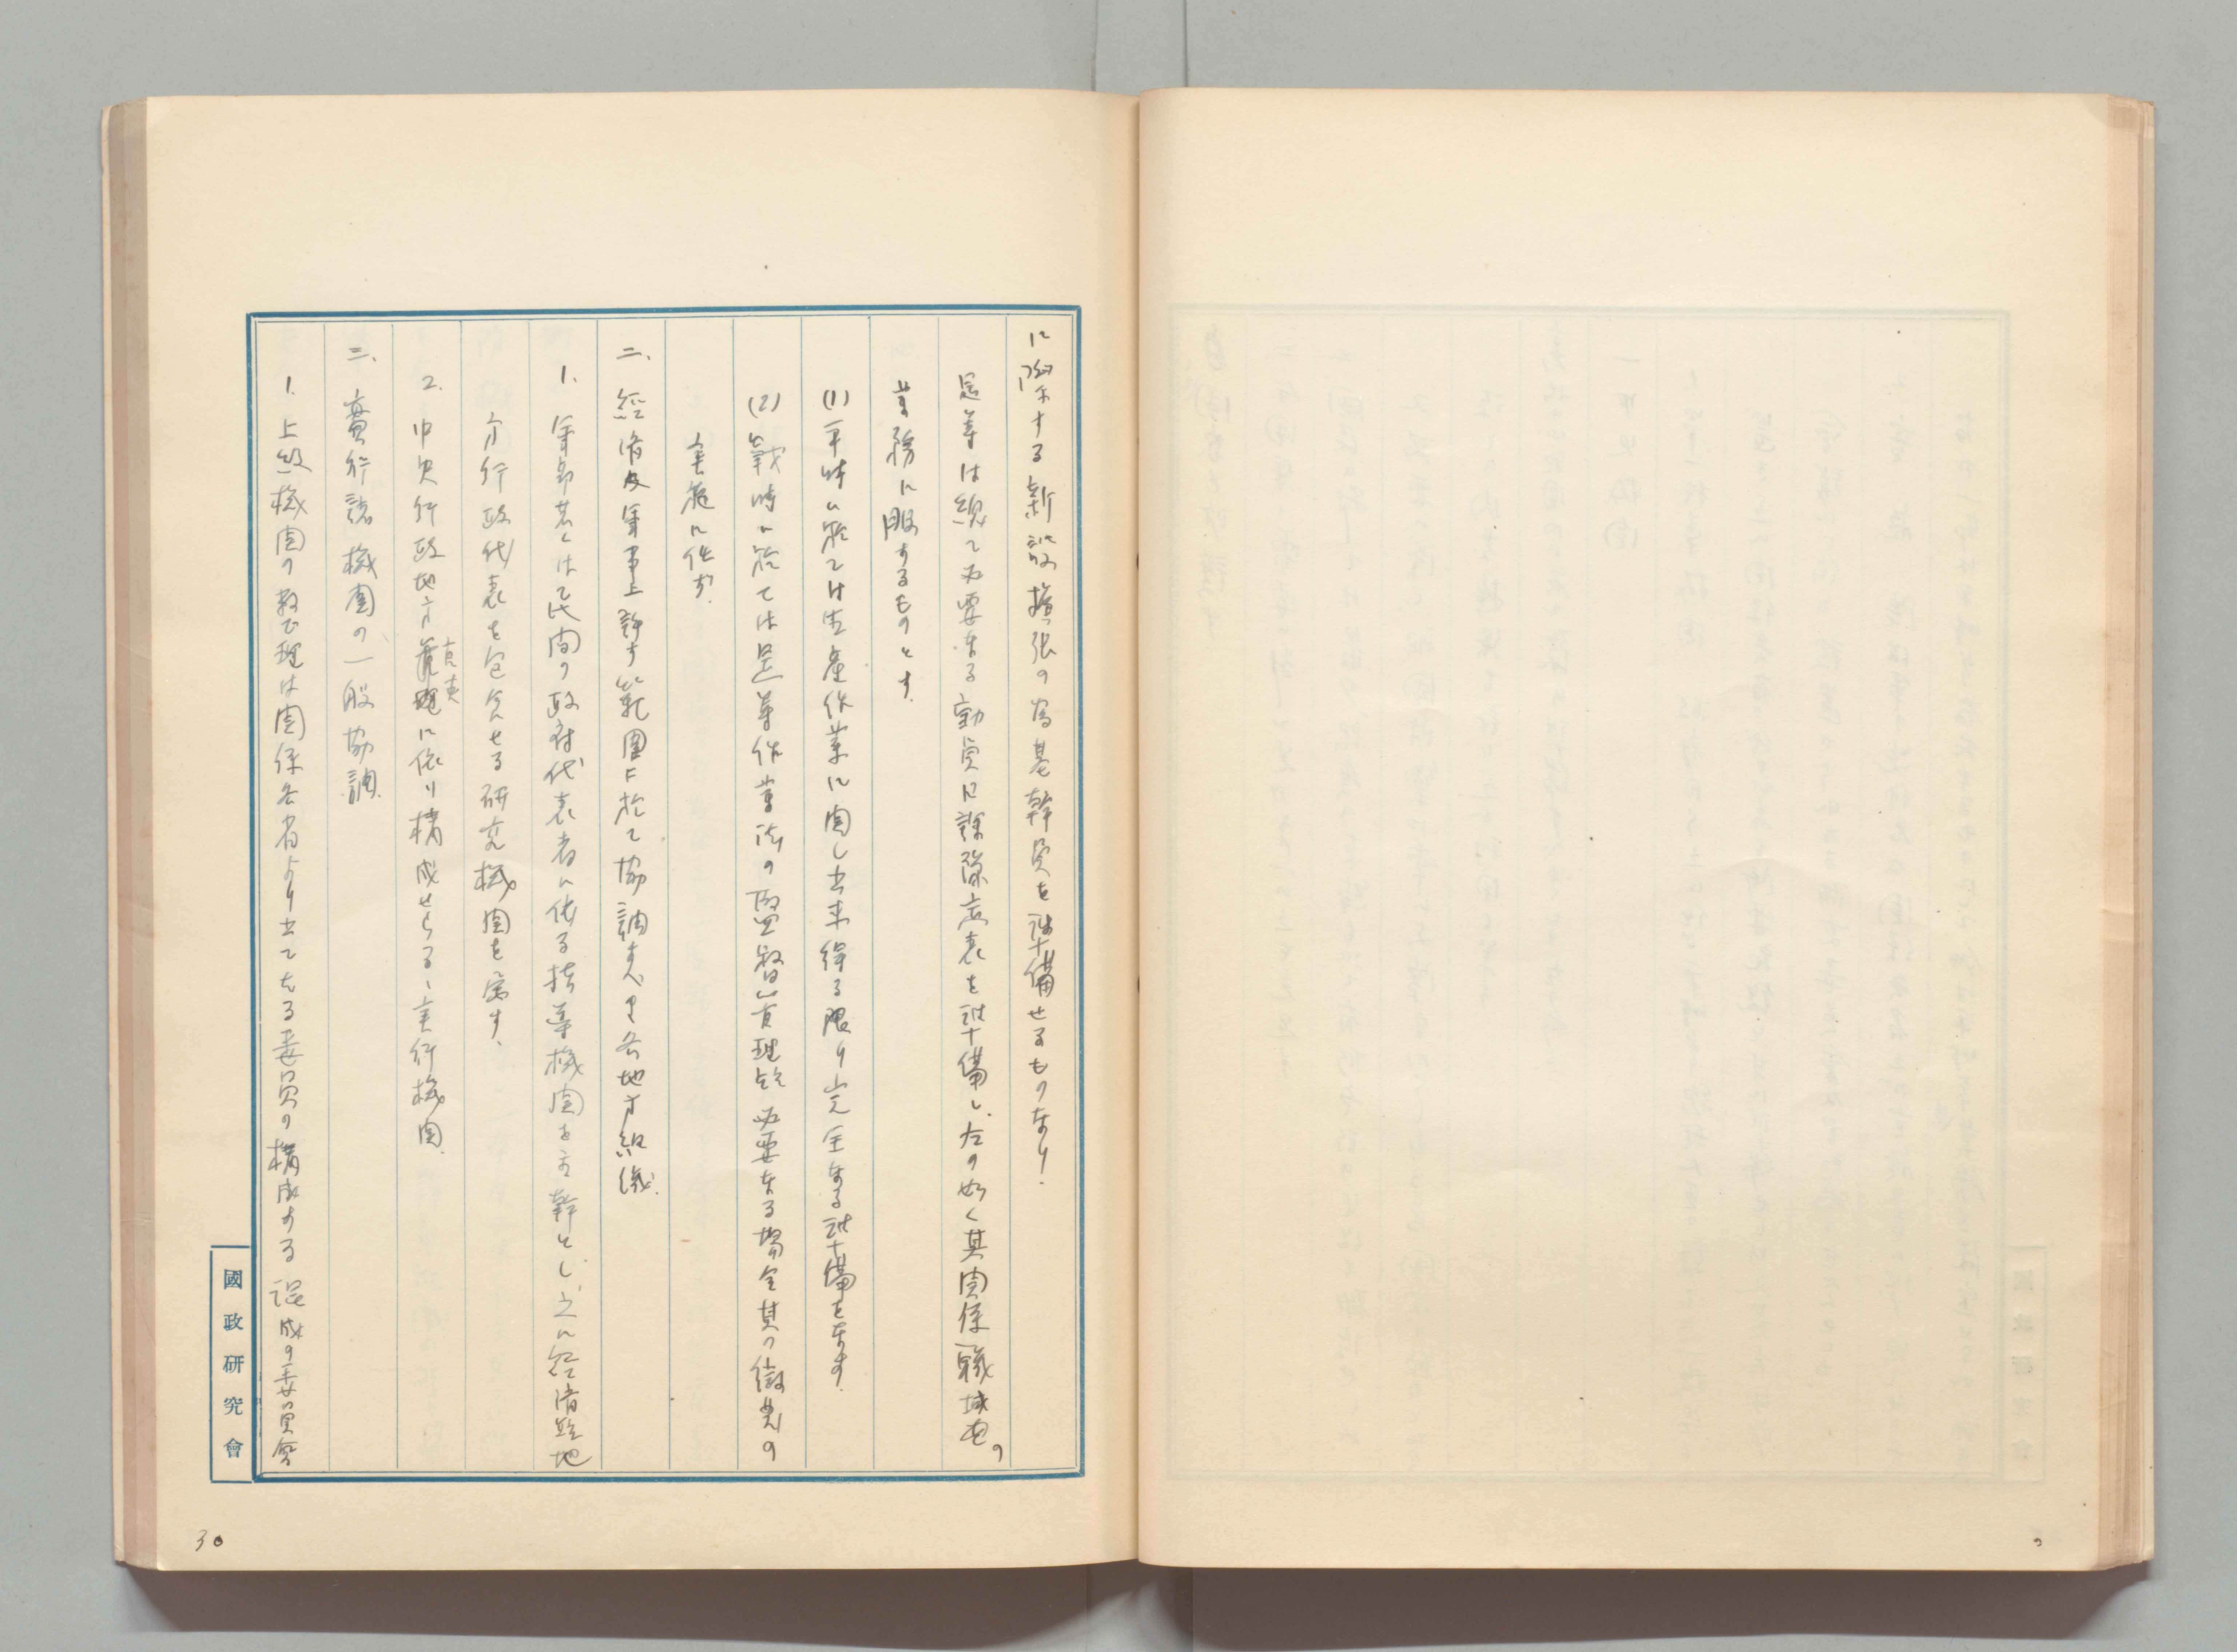 に際する新設擴張の為基幹員を準備せるものなり.
是等は總て必要なる動員日課豫定表を準備し、左の如く其関係職域内の
業務に服するものとす.
(1) 平時に於ては生産作業に関し出来得る限り完全なる準備をなす.
(2) 戦時に於ては是等作業法の監督、管理竝必要なる場合其の徴発の
実施に任ず.
二、經済及軍事上許す範囲に於て協調すべき各地方組織.
1. 軍部若くは民間の政府代表者に依る指導機関を主幹とし、之に經済竝地
方行政代表を包含せる研究機関を属す.
2. 中央行政地方官吏に依り構成せらるゝ実行機関.
三、實行諸機関の一般協調.
1. 上級機関の整理は関係各省より出てたる委員の構成する混成の委員会
國政研究會
30